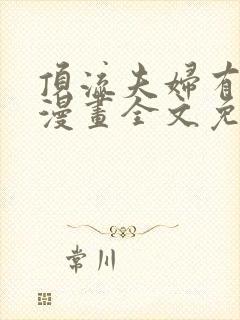 頂流夫婦有
漫畫全文免
常川